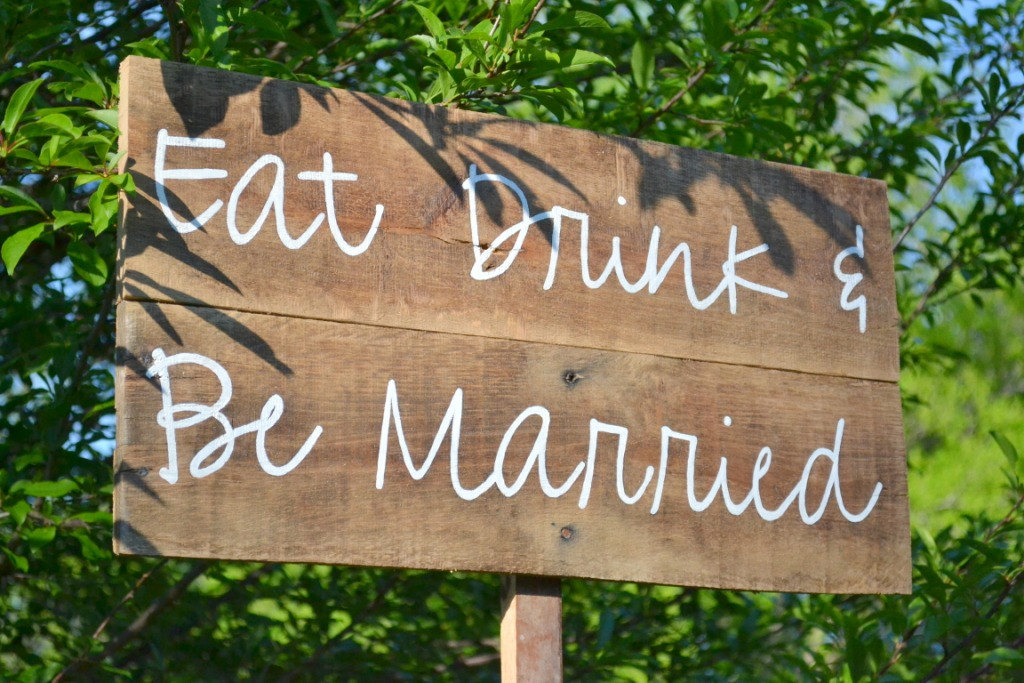 Eat Drink &
Be Married